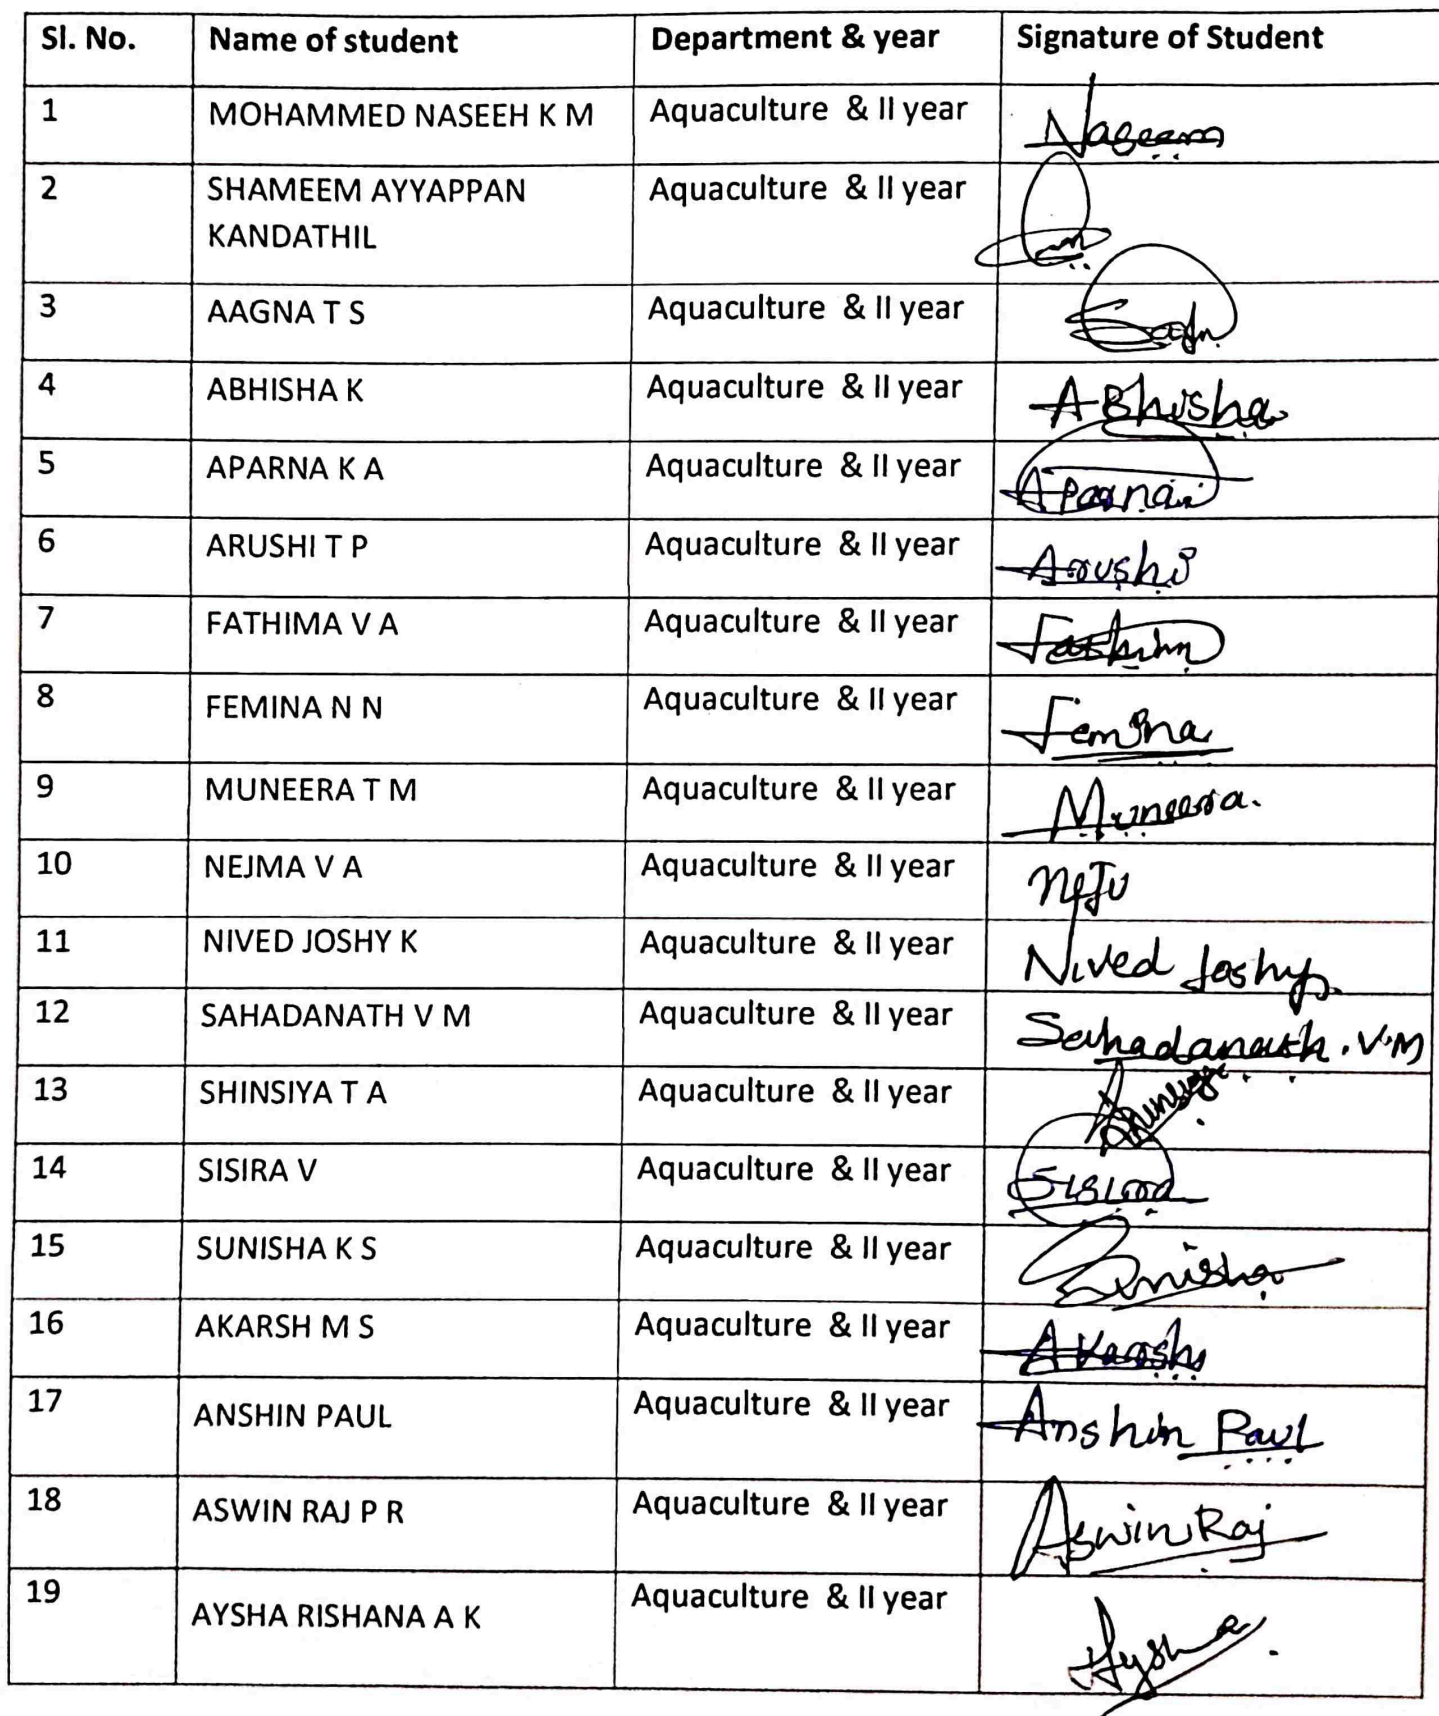 Sl. No. Name of student Department & year Signature of Student
1 MOHAMMED NASEEH K M Aquaculture & II year Naseem
2 SHAMEEM AYYAPPAN Aquaculture & II year
KANDATHIL
3 AAGNA T S Aquaculture & II year
4 ABHISHA K Aquaculture & II year ABhisha
5 APARNA K A Aquaculture & II year Aparna
6 ARUSHI T P Aquaculture & II year Arushi
7 FATHIMA V A Aquaculture & II year Fathim
8 FEMINA N N Aquaculture & II year Femina
9 MUNEERA T M Aquaculture & II year Muneera.
10 NEJMA V A Aquaculture & II year Neju
11 NIVED JOSHY K Aquaculture & II year Nived Joshy
12 SAHADANATH V M Aquaculture & II year Sahadanath.V.M
13 SHINSIYA T A Aquaculture & II year Shinsiya
14 SISIRA V Aquaculture & II year Sisira
15 SUNISHA K S Aquaculture & II year Sunisha
16 AKARSH M S Aquaculture & II year Akarsh
17 ANSHIN PAUL Aquaculture & II year Anshin Paul
18 ASWIN RAJ P R Aquaculture & II year Aswin Raj
19 AYSHA RISHANA A K Aquaculture & II year Aysha